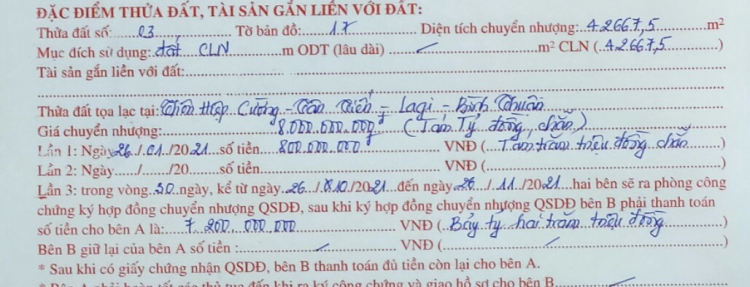 ĐẶC ĐIỂM THỬA ĐẤT, TÀI SẢN GẮN LIỀN VỚI ĐẤT:
Thửa đất số: 03 Tờ bản đồ: 17 Diện tích chuyển nhượng: 42667,5 m²
Mục đích sử dụng: đất CLN m ODT (lâu dài) m² CLN (42667,5)
Tài sản gắn liền với đất:
Thửa đất tọa lạc tại: Hiệp Cường - Tân Tiến - Lagi - Bình Thuận
Giá chuyển nhượng: 8.000.000.000₫ (Tám Tỷ đồng, chẵn)
Lần 1: Ngày 26/01/2021 số tiền 800.000.000₫ VNĐ (Tám trăm triệu đồng chẵn)
Lần 2: Ngày...../....../20.....số tiền VNĐ ( )
Lần 3: trong vòng 30 ngày, kể từ ngày 26/10/2021 đến ngày 26/11/2021 hai bên sẽ ra phòng công
chứng ký hợp đồng chuyển nhượng QSDĐ, sau khi ký hợp đồng chuyển nhượng QSDĐ bên B phải thanh toán
số tiền cho bên A là: 7.200.000.000 VNĐ (Bảy tỷ hai trăm triệu đồng)
Bên B giữ lại của bên A số tiền : VNĐ ( )
* Sau khi có giấy chứng nhận QSDĐ, bên B thanh toán đủ tiền còn lại cho bên A.